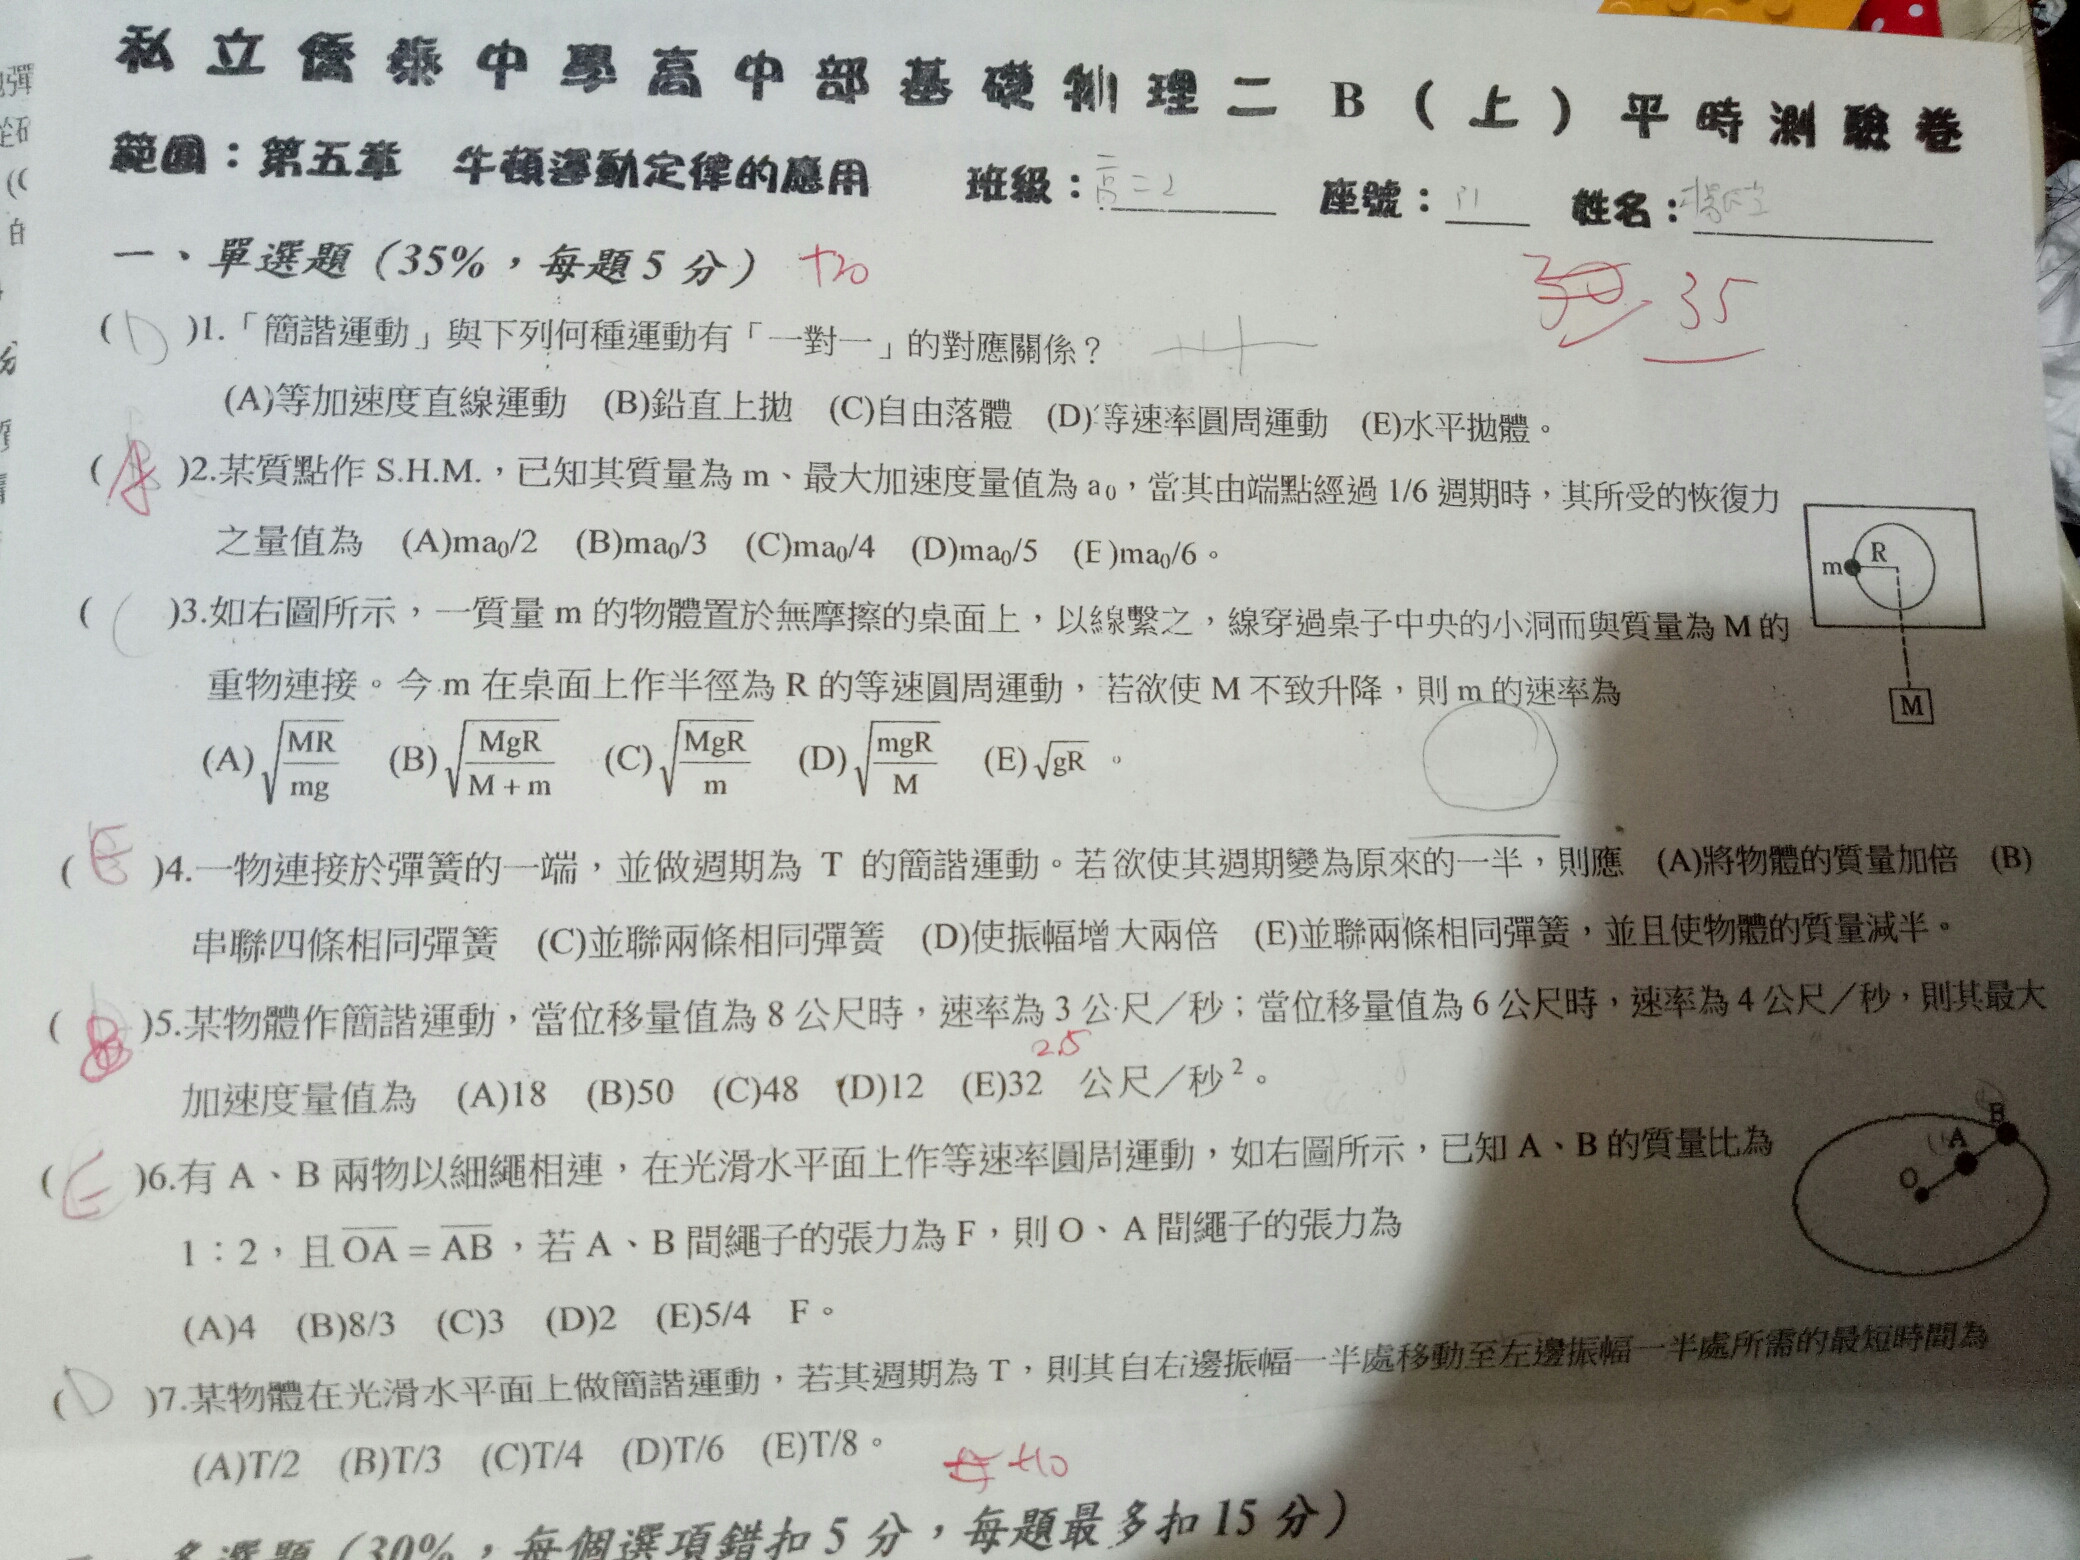 私立僑泰中學高中部基礎物理二B(上)平時測驗卷
範圍：第五章 牛頓運動定律的應用 班級：高二2 座號： 姓名：
一、單選題（35%，每題5分） +20
30 35
( D )1.「簡諧運動」與下列何種運動有「一對一」的對應關係？
(A)等加速度直線運動 (B)鉛直上拋 (C)自由落體 (D)等速率圓周運動 (E)水平拋體。
( A )2.某質點作 S.H.M.，已知其質量為 m、最大加速度量值為 a₀，當其由端點經過 1/6 週期時，其所受的恢復力
之量值為 (A)ma₀/2 (B)ma₀/3 (C)ma₀/4 (D)ma₀/5 (E)ma₀/6。
( C )3.如右圖所示，一質量 m 的物體置於無摩擦的桌面上，以線繫之，線穿過桌子中央的小洞而與質量為 M 的
重物連接。今 m 在桌面上作半徑為 R 的等速圓周運動，若欲使 M 不致升降，則 m 的速率為
(A)√(MR/mg) (B)√(MgR/(M+m)) (C)√(MgR/m) (D)√(mgR/M) (E)√gR。
m R
M
( E )4.一物連接於彈簧的一端，並做週期為 T 的簡諧運動。若欲使其週期變為原來的一半，則應 (A)將物體的質量加倍 (B)
串聯四條相同彈簧 (C)並聯兩條相同彈簧 (D)使振幅增大兩倍 (E)並聯兩條相同彈簧，並且使物體的質量減半。
( B )5.某物體作簡諧運動，當位移量值為 8 公尺時，速率為 3 公尺／秒；當位移量值為 6 公尺時，速率為 4 公尺／秒，則其最大
2.5
加速度量值為 (A)18 (B)50 (C)48 (D)12 (E)32 公尺／秒²。
( E )6.有 A、B 兩物以細繩相連，在光滑水平面上作等速率圓周運動，如右圖所示，已知 A、B 的質量比為
1：2，且 OA = AB，若 A、B 間繩子的張力為 F，則 O、A 間繩子的張力為
(A)4 (B)8/3 (C)3 (D)2 (E)5/4 F。
O A B
( D )7.某物體在光滑水平面上做簡諧運動，若其週期為 T，則其自右邊振幅一半處移動至左邊振幅一半處所需的最短時間為
(A)T/2 (B)T/3 (C)T/4 (D)T/6 (E)T/8。
+10
多選題（30%，每個選項錯扣5分，每題最多扣15分）